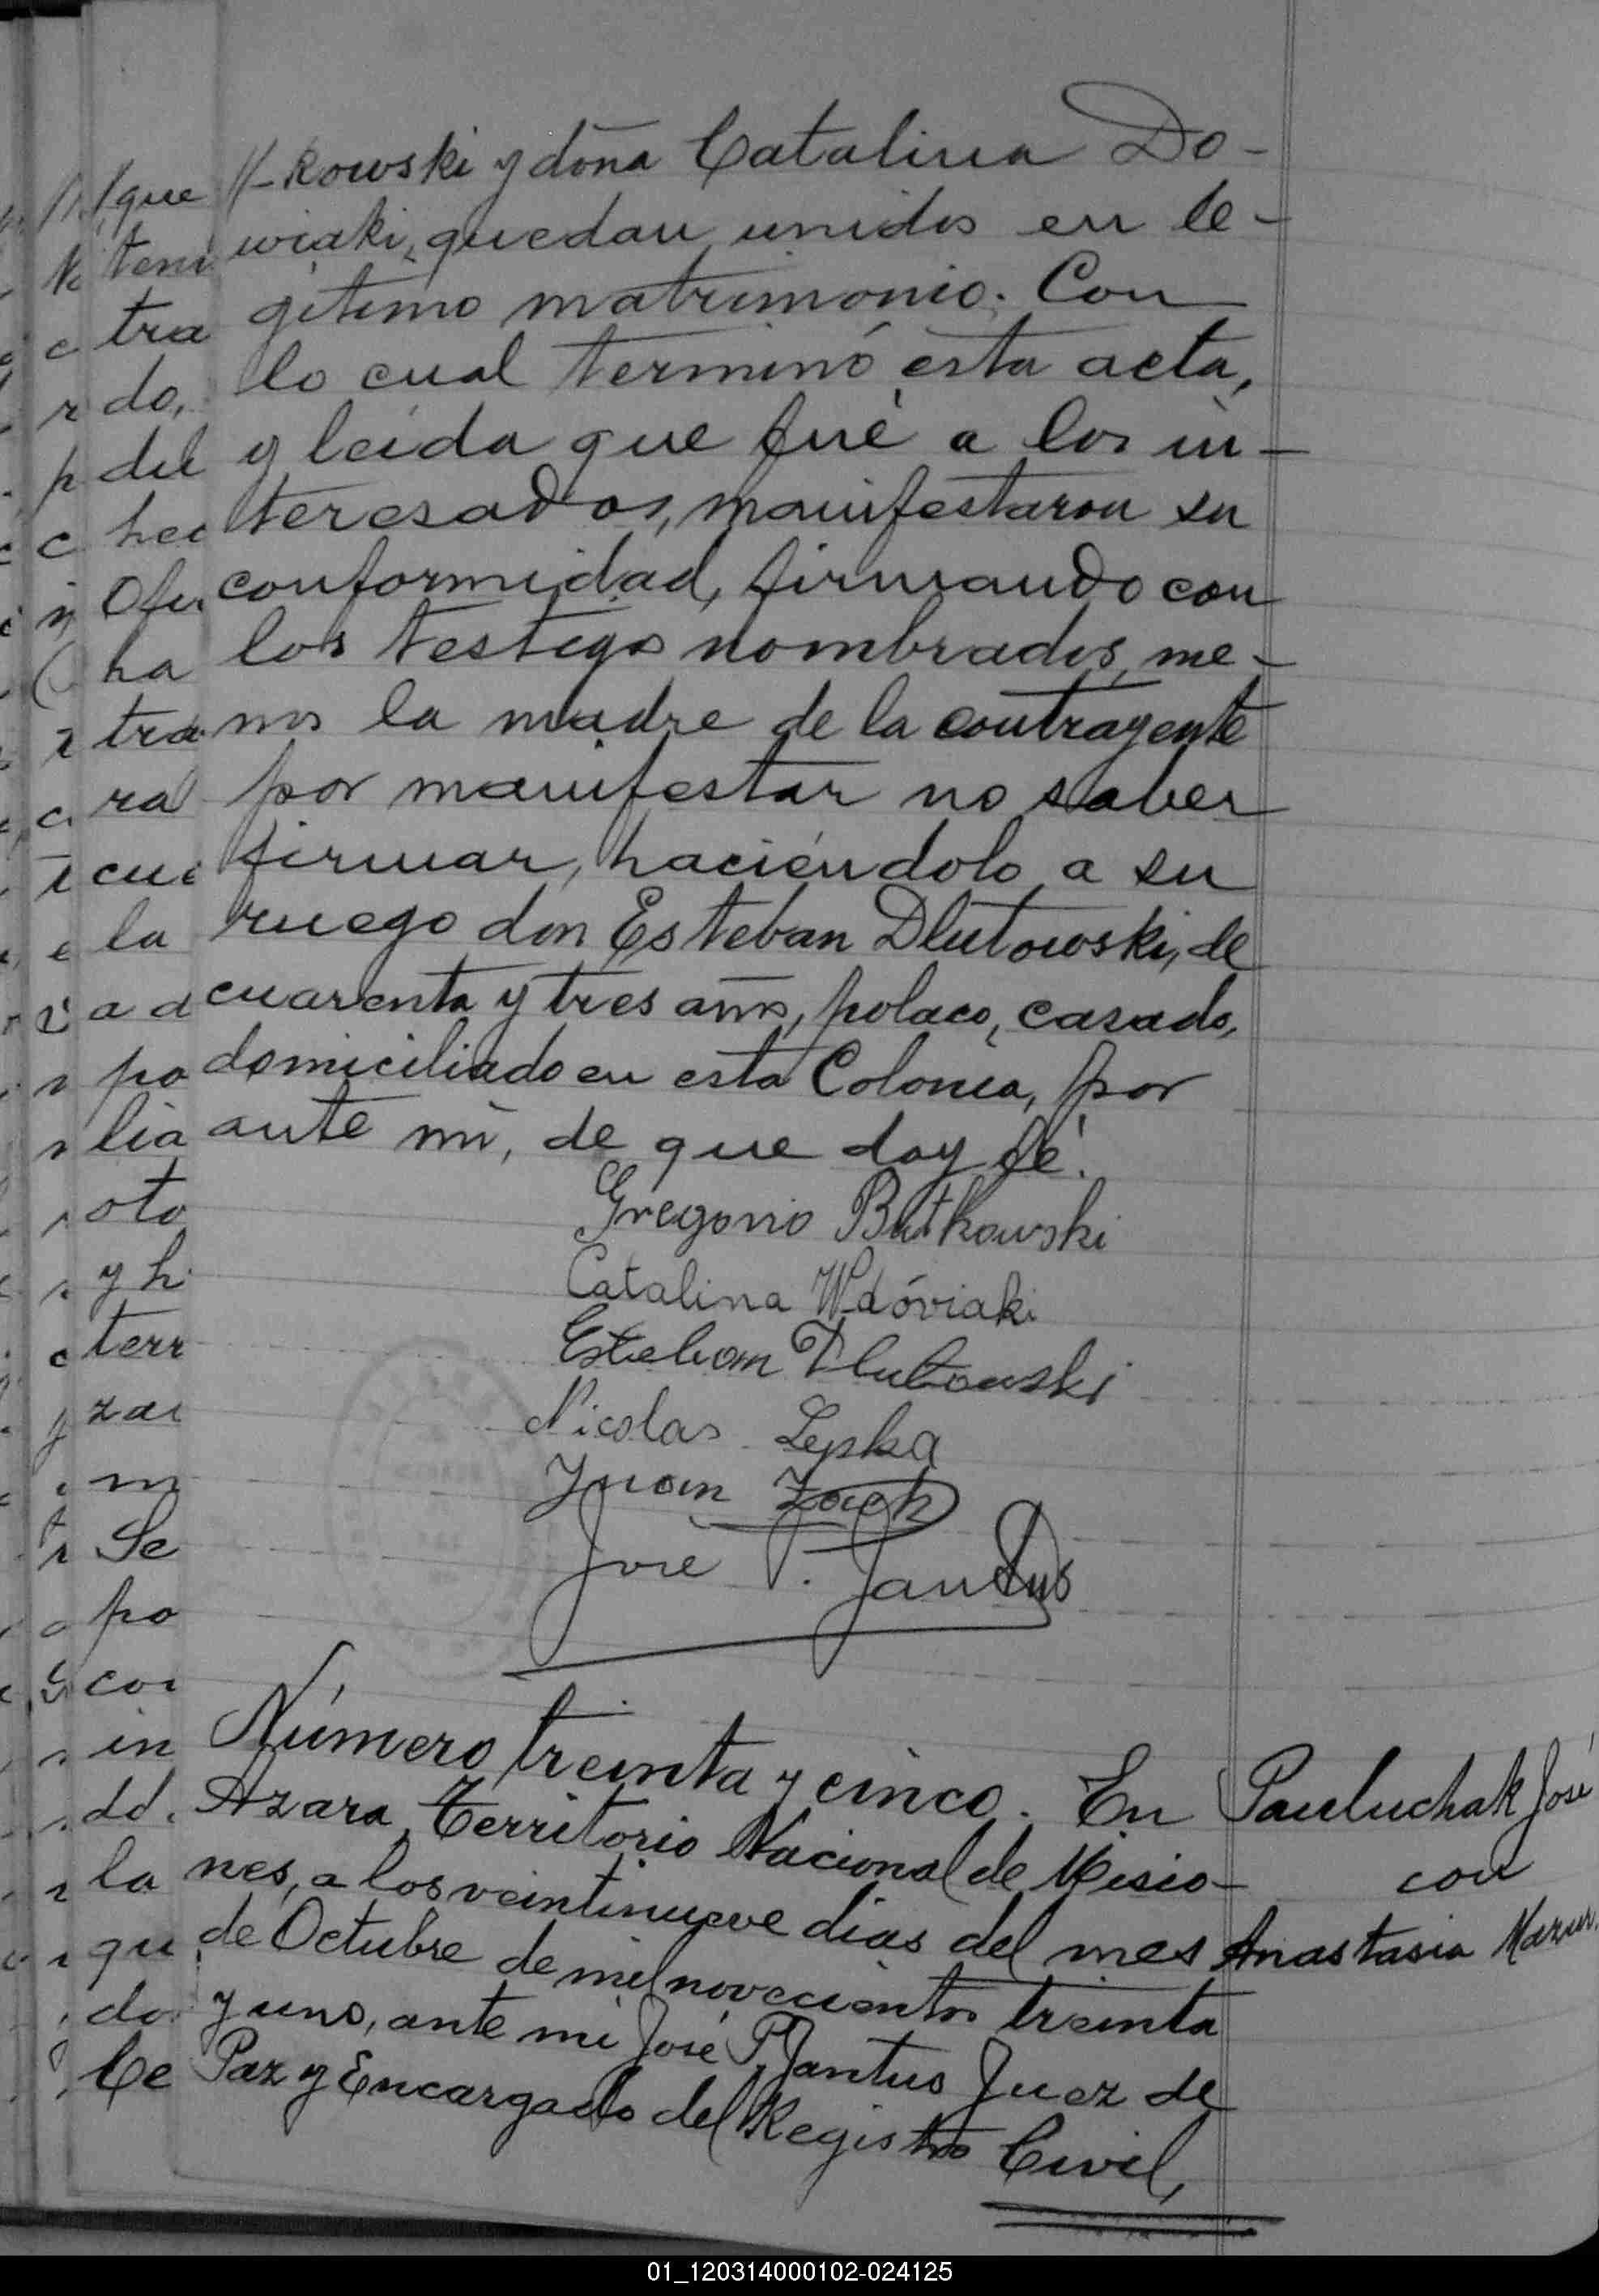 //-kowski y doña Catalina Do-
wiaki, quedan unidos en le-
gitimo matrimonio. Con
lo cual terminó esta acta,
y leida que fué a los in-
teresados, manifestaron su
conformidad, firmando con
los testigos nombrados, me-
nos la madre de la contrayente
por manifestar no saber
firmar, haciéndolo a su
ruego don Esteban Dlutowski, de
cuarenta y tres años, polaco, casado,
domiciliado en esta Colonia, por
ante mi, de que doy fé.
Gregorio Butkowski
Catalina Wdóviaki
Esteban Dlutowski
Nicolas Lepka
Juan
José P. Jantus
Número treinta y cinco. En
Azara, Territorio Nacional de Misio-
nes, a los veintinueve dias del mes
de Octubre de mil novecientos treinta
y uno, ante mi José P. Jantus Juez de
Paz y Encargado del Registro Civil,
Pauluchak José
con
Anastasia
01_120314000102-024125